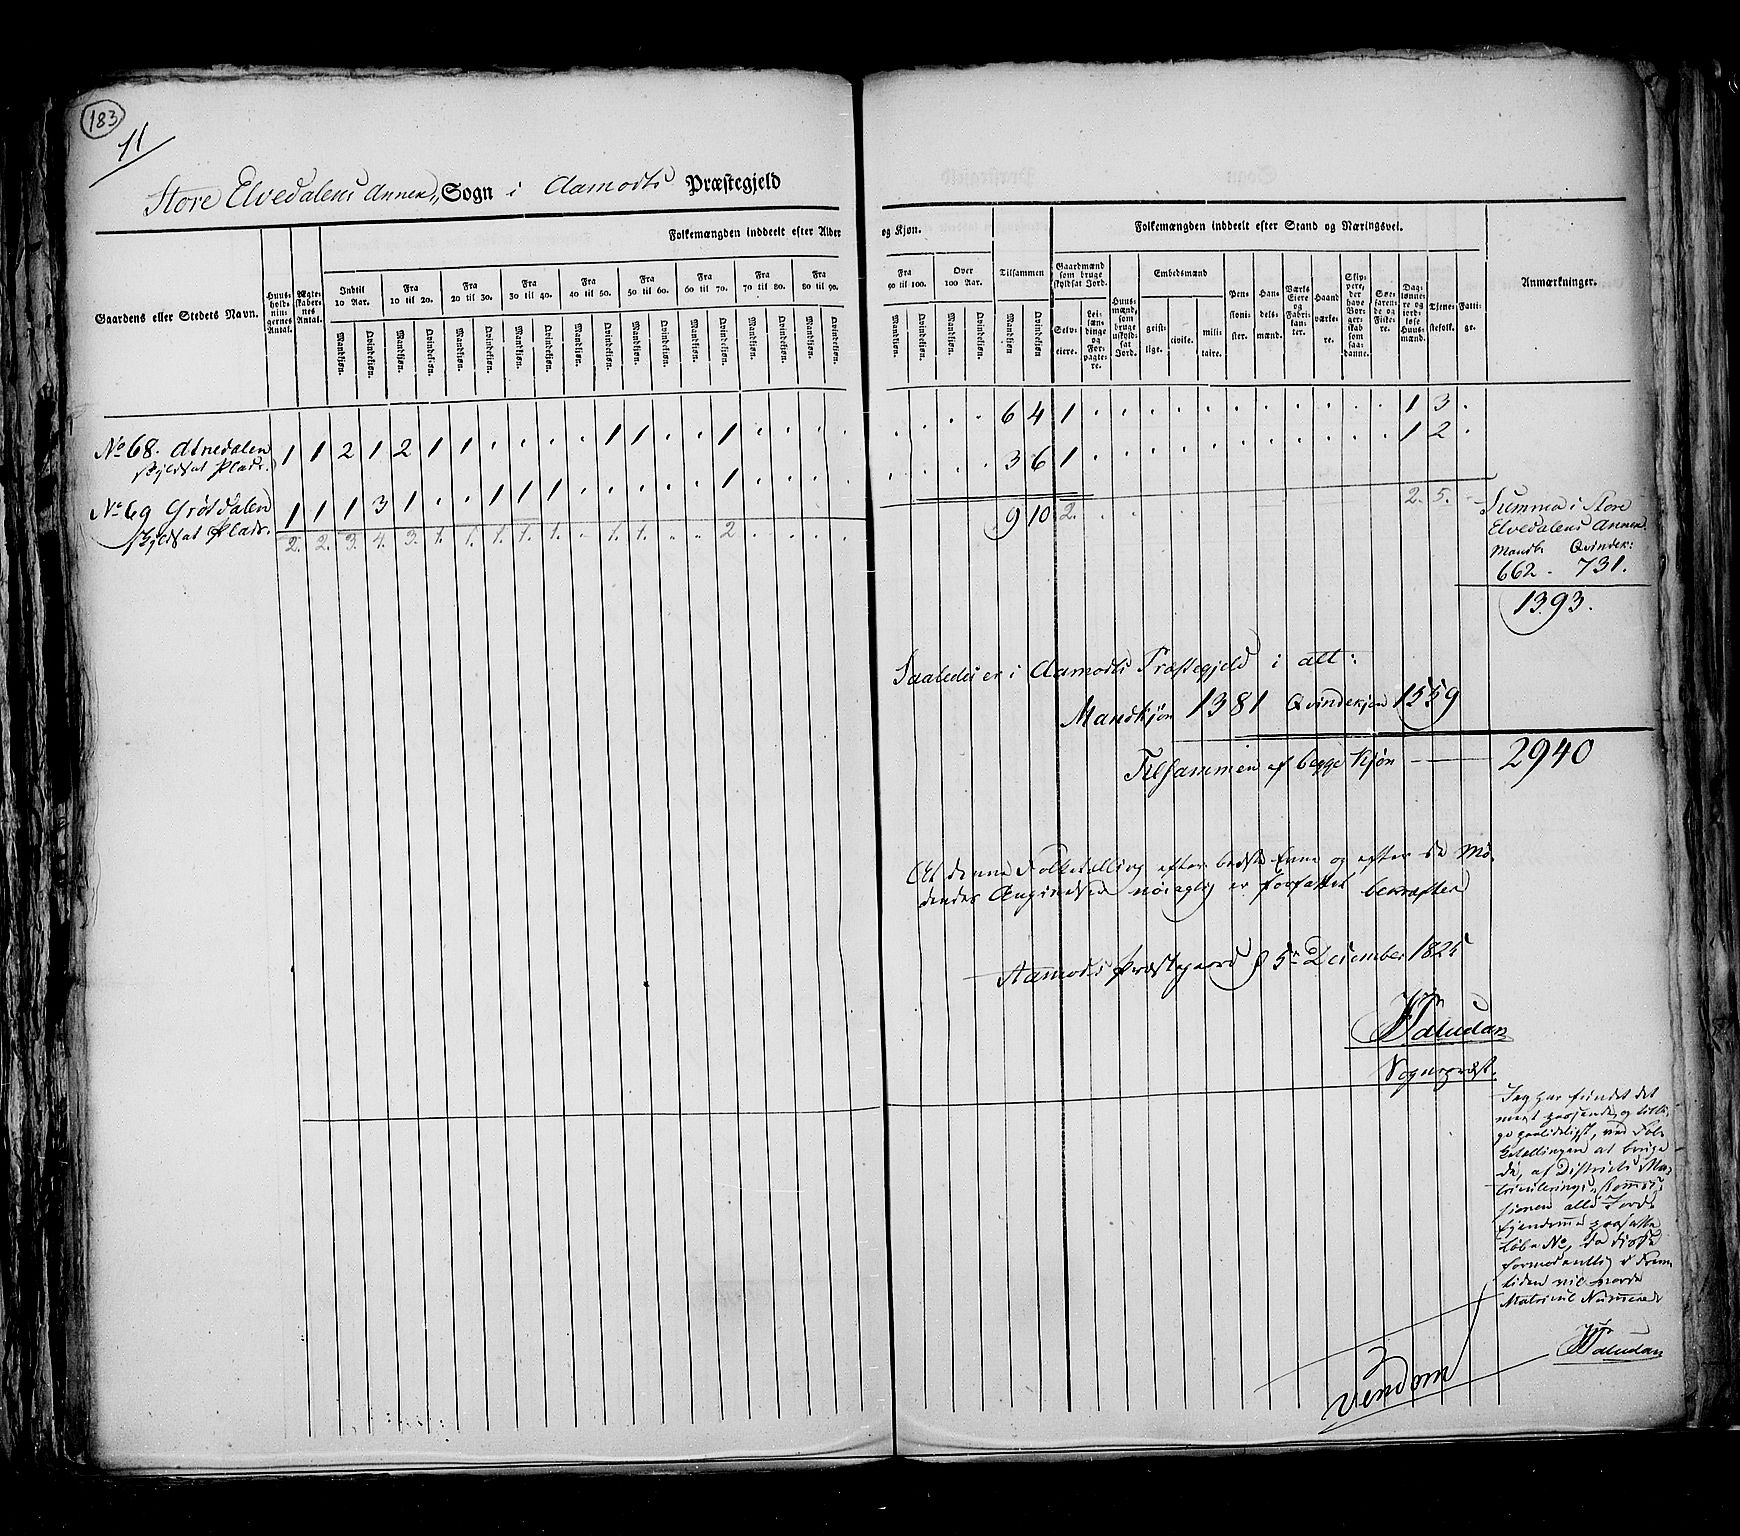 183
11
Store Elvedalens Annex, Sogn i Aamodts Præstegjeld
Gaardens eller Stedets Navn.
Huus-holdningernes Antal.
Ægteskabernes Antal.
Folkemængden inddeelt efter Alder og Kjøn.
Indtil 10 Aar. Fra 10 til 20. Fra 20 til 30. Fra 30 til 40. Fra 40 til 50. Fra 50 til 60. Fra 60 til 70. Fra 70 til 80. Fra 80 til 90. Fra 90 til 100. Over 100 Aar. Tilsammen
Mandkjøn. Qvindekjøn. Mandkjøn. Qvindekjøn. Mandkjøn. Qvindekjøn. Mandkjøn. Qvindekjøn. Mandkjøn. Qvindekjøn. Mandkjøn. Qvindekjøn. Mandkjøn. Qvindekjøn. Mandkjøn. Qvindekjøn. Mandkjøn. Qvindekjøn. Mandkjøn. Qvindekjøn. Mandkjøn. Qvindekjøn. Mandkjøn Qvindekjøn
Folkemængden inddeelt efter Stand og Næringsvei.
Gaardmænd som bruge skyldsat Jord.
Selveiere.
Leilændinge og Forpagtere.
Huusmænd, som bruge uskyldsat Jord.
Embedsmænd
geistlige.
civile.
militaire.
Pensionister.
Handelsmænd.
Værks Eiere og Fabrikanter.
Haandværkere.
Skippere, der have Borgerskab som saadanne.
Søefarende og Fiskere.
Daglønnere og jordløse Huusmænd.
Tjenestefolk.
Fattige.
Anmærkninger.
No 68. Atnedalen 1 1 2 1 2 1 1 . . . . 1 1 . . 1 . . . . . . . . 6 4 1 . . . . . . . . . . . 1 3 .
skyldsat Plads.
No 69 Grøtdalen 1 1 1 3 1 . . 1 1 1 . . . . . 1 . . . . . . . . 3 6 1 . . . . . . . . . . . 1 2 .
skyldsat Plads.
2. 2. 3. 4. 3. 1. 1. 1. 1. 1. . 1. 1. . . 2 . . . . 9 10 2. . . . 2. 5. .
Summa i Store
Elvedalens Annex.
Mandk. Qvindek:
662. 731.
1393.
Saaledes er i Aamodts Præstegjeld i alt:
Mandkjøn 1381 Qvindekjøn 1559
Tilsammen af begge Kjøn — 2940
At denne Folketælling efter bedste Evne og efter de Mø-
dendes Angivelser nøiagtig er forfattet bekræfter
Aamodts Præstegaard d 5te December 1825
Paludan
Sognepræst.
Jeg har fundet det
meest passende og tilli-
ge paalideligst, ved Fol-
ketællingen at bruge
de, af Districts Ma-
triculerings Commis-
sionen alle Jord-
Eiendomme paasatte
Løbe No, da disse
formodentlig i Frem-
tiden vil vorde
Matricul Numere
Paludan
Vendom